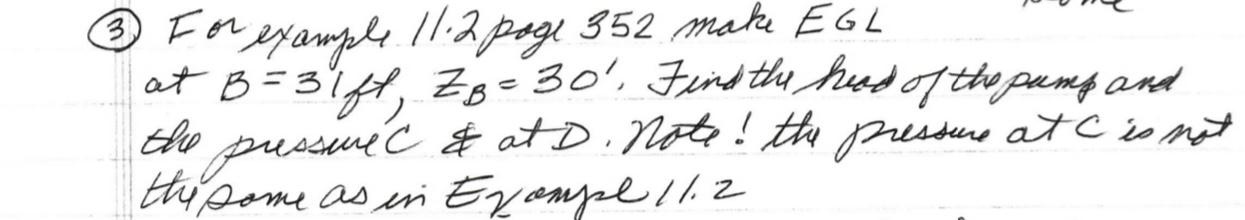 ③ For example 11.2 page 352 make EGL
at B = 31ft, ZB = 30'. Find the head of the pump and
the pressure C & at D. Note! the pressure at C is not
the same as in Exampel 11.2